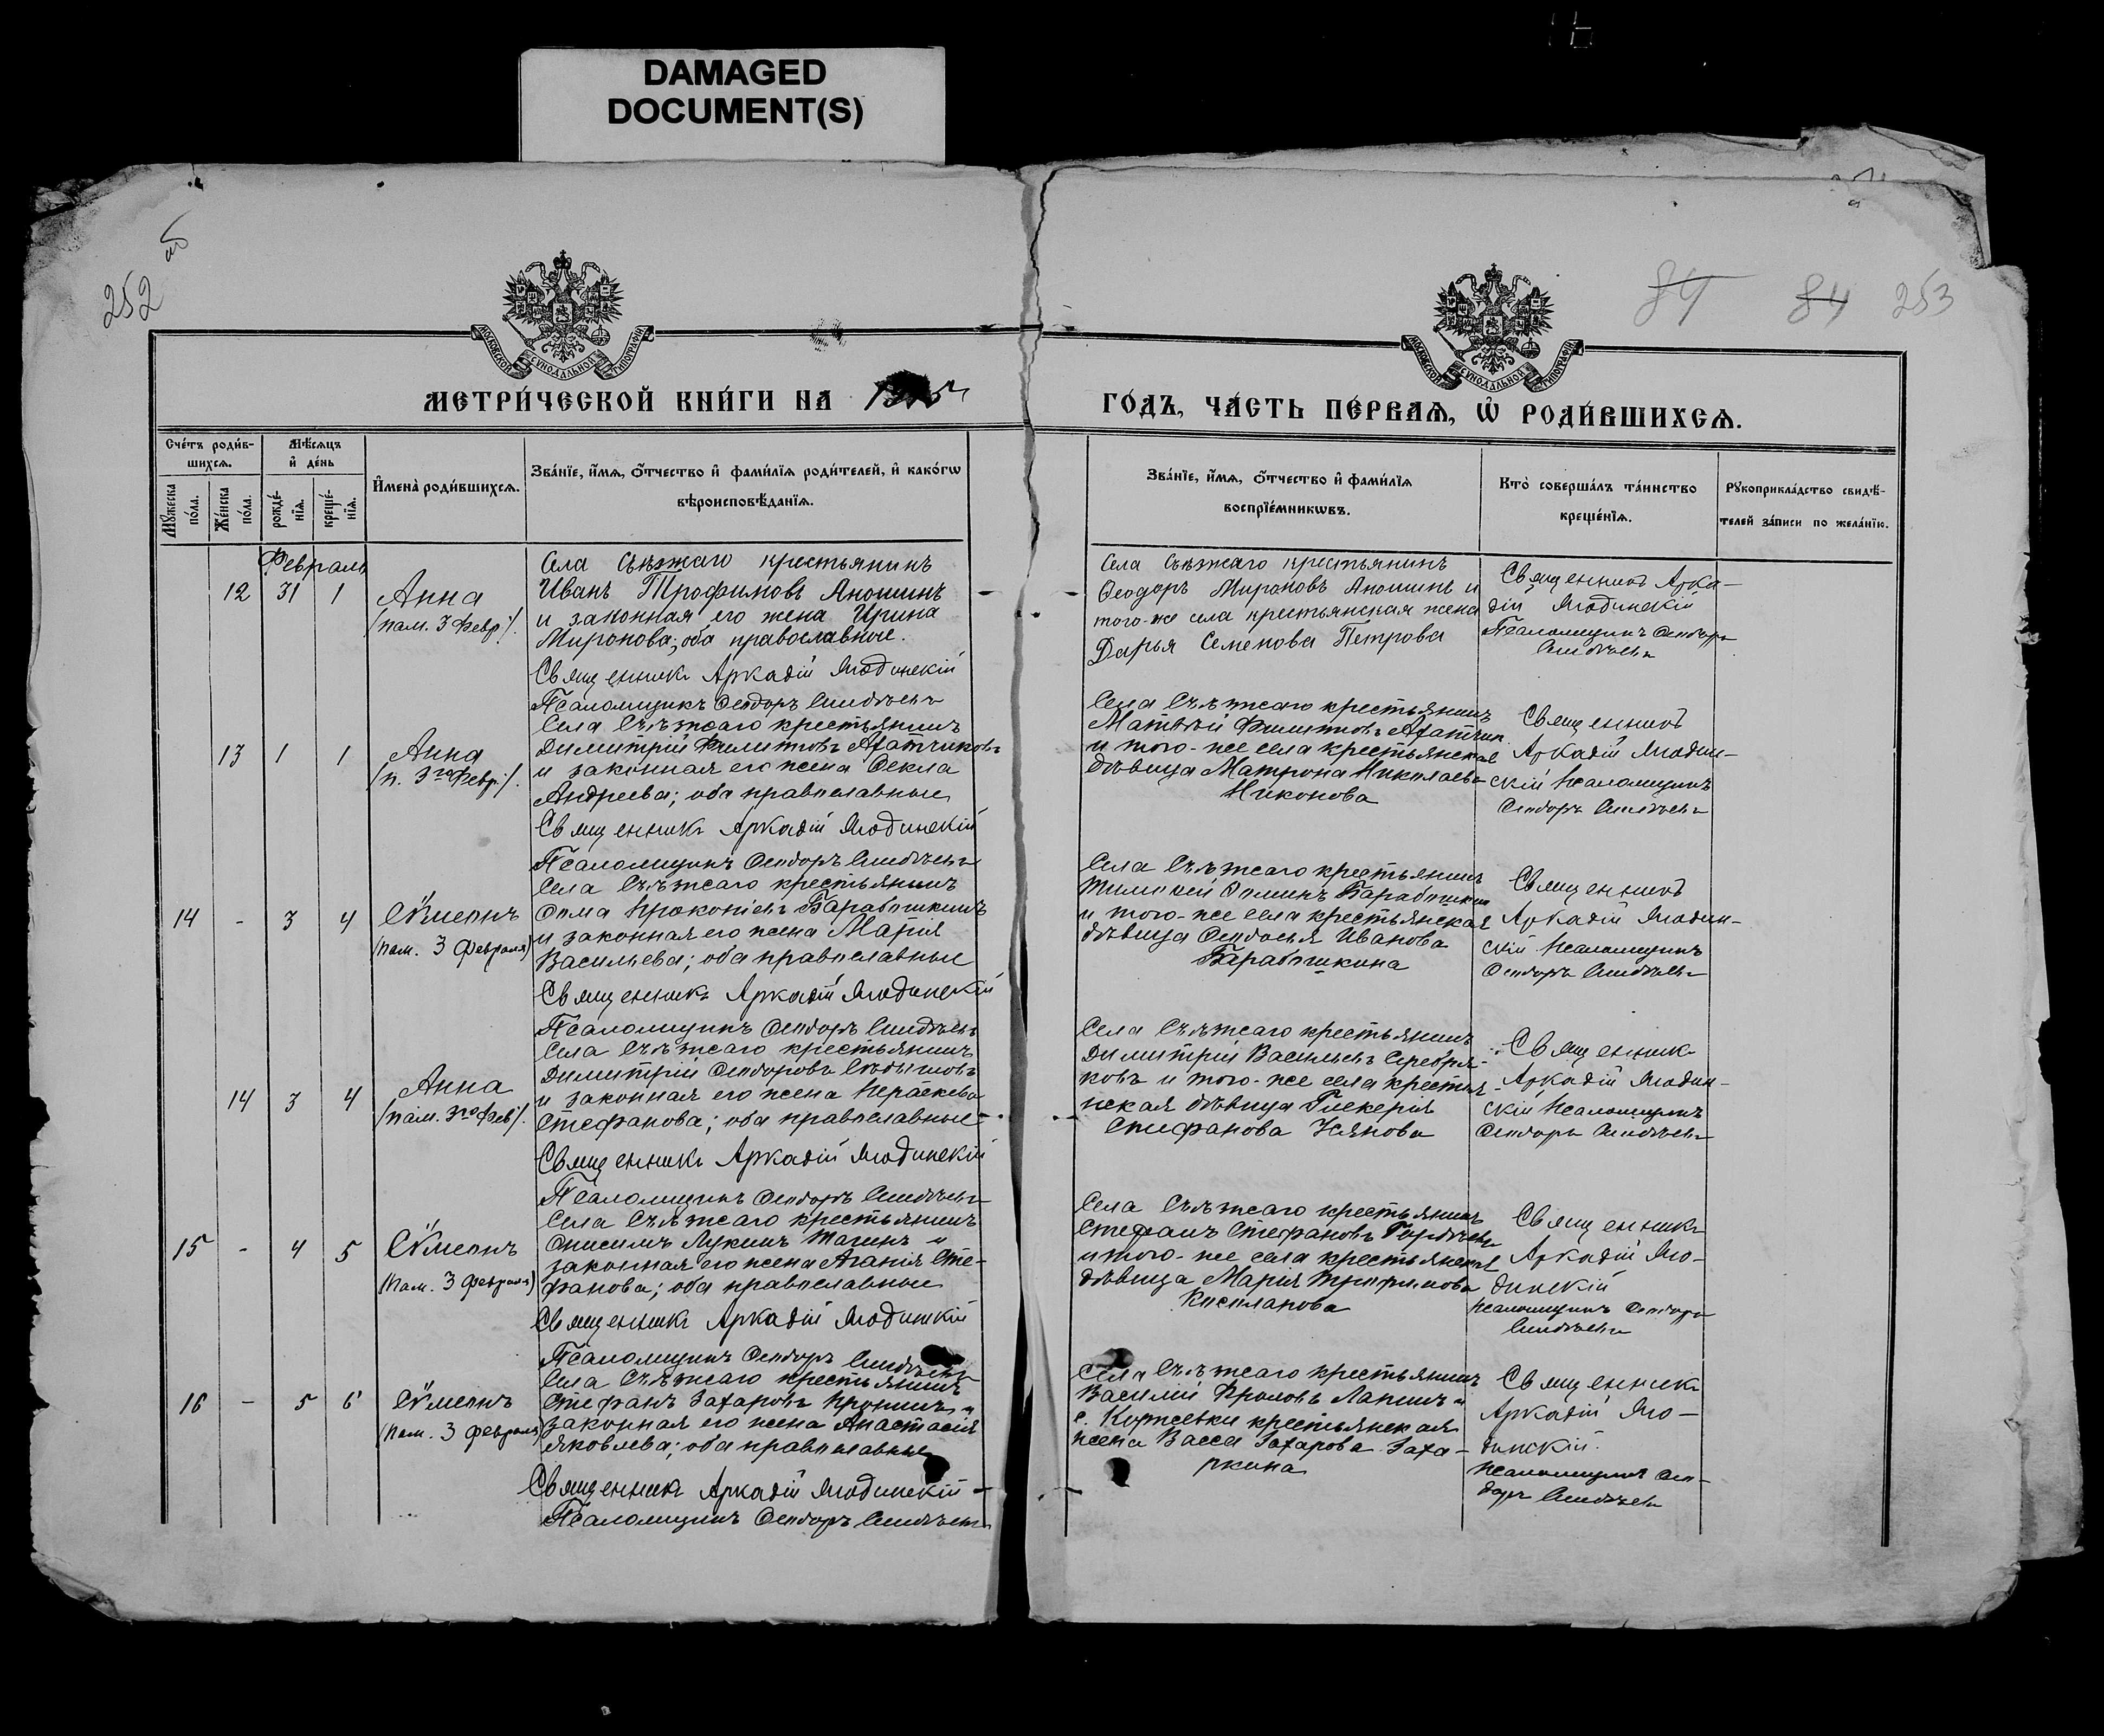 DAMAGED
DOCUMENT(S)
252 об
84 84 253
МОСКОВСКОЙ СУНОДАЛЬНОЙ ТИПОГРАФІИ
МОСКОВСКОЙ СУНОДАЛЬНОЙ ТИПОГРАФІИ
МЕТРИ́ЧЕСКОЙ КНИ́ГИ НА
ГО́ДЪ, ЧА́СТЬ ПЕ́РВАѦ, Ѡ҆ РОДИ́ВШИХСѦ.
Сче́тъ роди́в-
шихсѧ.
Мꙋ́жеска по́ла.
Же́нска по́ла.
Мѣ́сѧцъ
и҆ де́нь
рожде́-
нїѧ.
креще́-
нїѧ.
И҆мена̀ роди́вшихсѧ.
Зва́нїе, и҆́мѧ, ѻ҆́тчество и҆ фами́лїѧ роди́телей, и҆ како́гѡ
вѣроисповѣ́данїѧ.
Зва́нїе, и҆́мѧ, ѻ҆́тчество и҆ фами́лїѧ
воспрїе́мникѡвъ.
Кто̀ соверша́лъ та́инство
креще́нїѧ.
Рꙋкоприкла́дство свидѣ́-
телей за́писи по жела́нїю.
Февраль
12 31 1
Анна
/пам. 3 Февр:/.
Села Съезжаго крестьянинъ
Иванъ Трофимовъ Аношинъ
и законная его жена Ирина
Миронова; оба православные.
Священникъ Аркадій
Псаломщикъ Ѳеодоръ
Села Съезжаго крестьянинъ
Ѳеодоръ Мироновъ Аношинъ и
того-же села крестьянская жена
Дарья Семенова Петрова
Священникъ Арка-
дій
Псаломщикъ Ѳеодоръ
13 1 1
Анна
/п. 3го Февр:/.
Села Съѣзжаго крестьянинъ
Димитрій Филиповъ Агатчиковъ
и законная его жена Ѳекла
Андреева; оба православные
Священникъ Аркадій
Псаломщикъ Ѳеодоръ
Села Съѣзжаго крестьянинъ
Матвѣй Филиповъ
и того-же села крестьянская
дѣвица Матрона Николаева
Никонова
Священникъ
Аркадій
скій Псаломщикъ
Ѳеодоръ
14 - 3 4
Сѵмеонъ
(пам. 3 Февраля)
Села Съѣзжаго крестьянинъ
Ѳома Прокопіевъ Барабошкинъ
и законная его жена Марія
Васильева; оба православные
Священникъ Аркадій
Псаломщикъ Ѳеодоръ
Села Съѣзжаго крестьянинъ
Тимоѳей Ѳоминъ Барабошкинъ
и того-же села крестьянская
дѣвица Ѳеодосья Иванова
Барабошкина
Священникъ
Аркадій
скій Псаломщикъ
Ѳеодоръ
14 3 4
Анна
/пам. 3го Фев:/.
Села Съѣзжаго крестьянинъ
Димитрій Ѳеодоровъ
и законная его жена Параскева
Стефанова; оба православные
Священникъ Аркадій
Псаломщикъ Ѳеодоръ
Села Съѣзжаго крестьянинъ
Димитрій Васильевъ Серебря-
ковъ и того-же села крестья-
нская дѣвица Гликерія
Стефанова
Священникъ
Аркадій
скій Псаломщикъ
Ѳеодоръ
15 - 4 5
Сѵмеонъ
(пам. 3 Февраля)
Села Съѣзжаго крестьянинъ
Онисимъ Лукинъ и
законная его жена Агапія Сте-
фанова; оба православные
Священникъ Аркадій
Псаломщикъ Ѳеодоръ
Села Съѣзжаго крестьянинъ
Стефанъ Стефановъ
и того-же села крестьянская
дѣвица Марія Трофимова
Священникъ
Аркадій
динскій
Псаломщикъ Ѳеодоръ
16 - 5 6
Сѵмеонъ
(пам. 3 Февраля)
Села Съѣзжаго крестьянинъ
Стефанъ Захаровъ Пронинъ и
законная его жена Анастасія
Яковлева; оба православные
Священникъ Аркадій
Псаломщикъ Ѳеодоръ
Села Съѣзжаго крестьянинъ
Василій Фроловъ Лапшинъ и
с. крестьянская
жена Васса Захарова Заха-
ркина
Священникъ
Аркадій
динскій.
Псаломщикъ Ѳео-
доръ